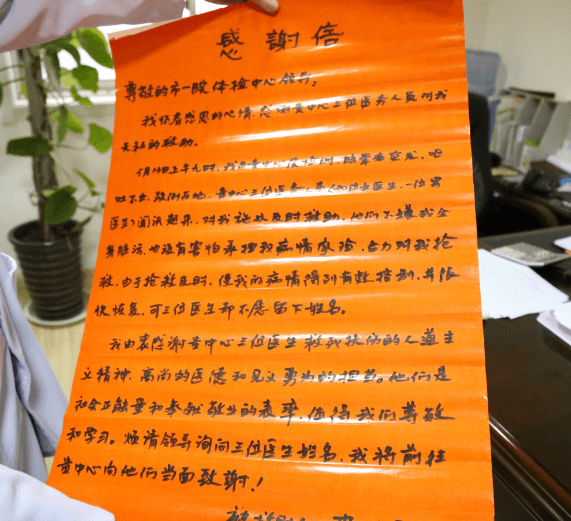 感謝信
尊敬的市一院体检中心领导:
我怀着感恩的心情,感谢贵中心三位医务人员对我
无私的救助。
上午九时,我在贵中心体检时,突发,呕
吐不止,跌倒在地,贵中心三位医务人员(二位女医生,一位男
医生)闻讯赶来,对我施以及时救助,他们不嫌我全
身脏污,也没有害怕承担我病情风险,合力对我抢
救。由于抢救及时,使我的病情得到有效控制,并很
快恢复,可三位医生却不愿留下姓名。
我由衷感谢贵中心三位医生救死扶伤的人道主
义精神,高尚的医德和见义勇为的担当。他们是
社会正能量和奉献敬业的表率,值得我们尊敬
和学习。烦请领导询问三位医生姓名,我将前往
贵中心向他们当面致谢!